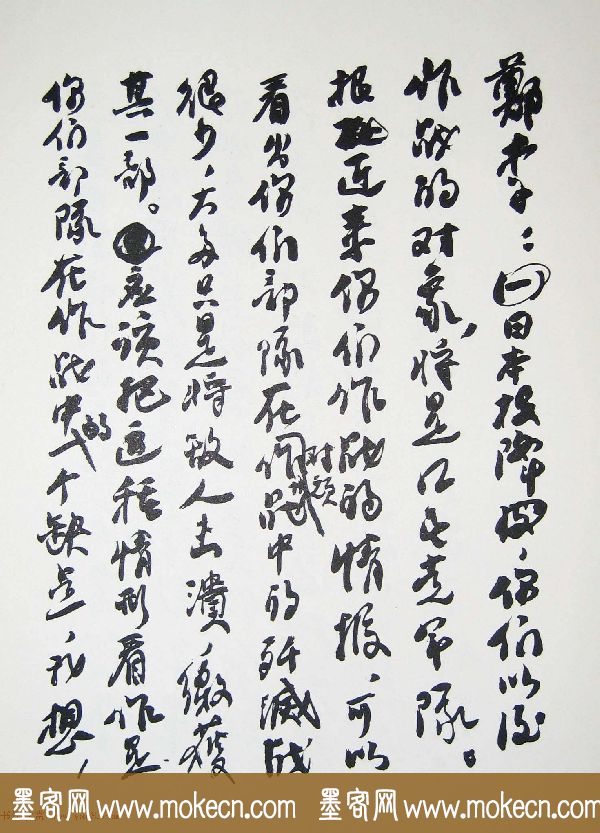 鄭李：㈠日本投降，你们以后
作战的对象，将是国民党军队。
据近来你们作战的情报，可以
看出你们部队在对顽作战中的歼灭战
很少，大多只是将敌人击溃，缴获
其一部。应该把这种情形看作是
你们部队在作战中的一个缺点，我想，
墨客网www.mokecn.com 墨客网www.mokecn.com